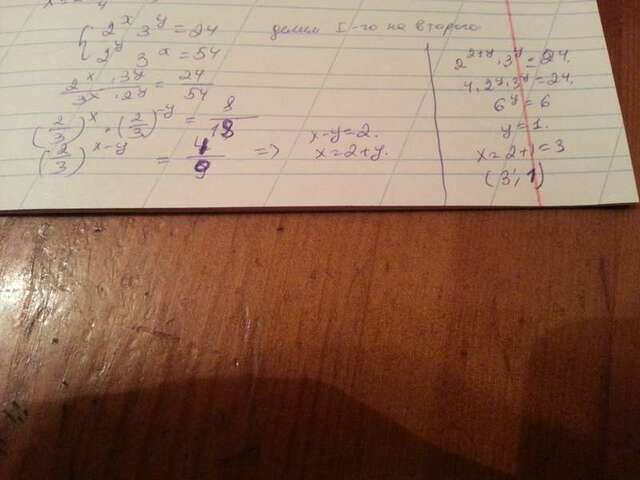 2^x 3^y = 24 делим I-го на второго
2^y 3^x = 54
2^x · 3^y / 3^x · 2^y = 24 / 54
(2/3)^x · (2/3)^-y = 8 / 18
(2/3)^x-y = 4 / 9 => x-y=2.
x=2+y.
2^2+y · 3^y = 24.
4 · 2^y · 3^y = 24.
6^y = 6
y = 1.
x = 2+1 = 3
(3; 1)